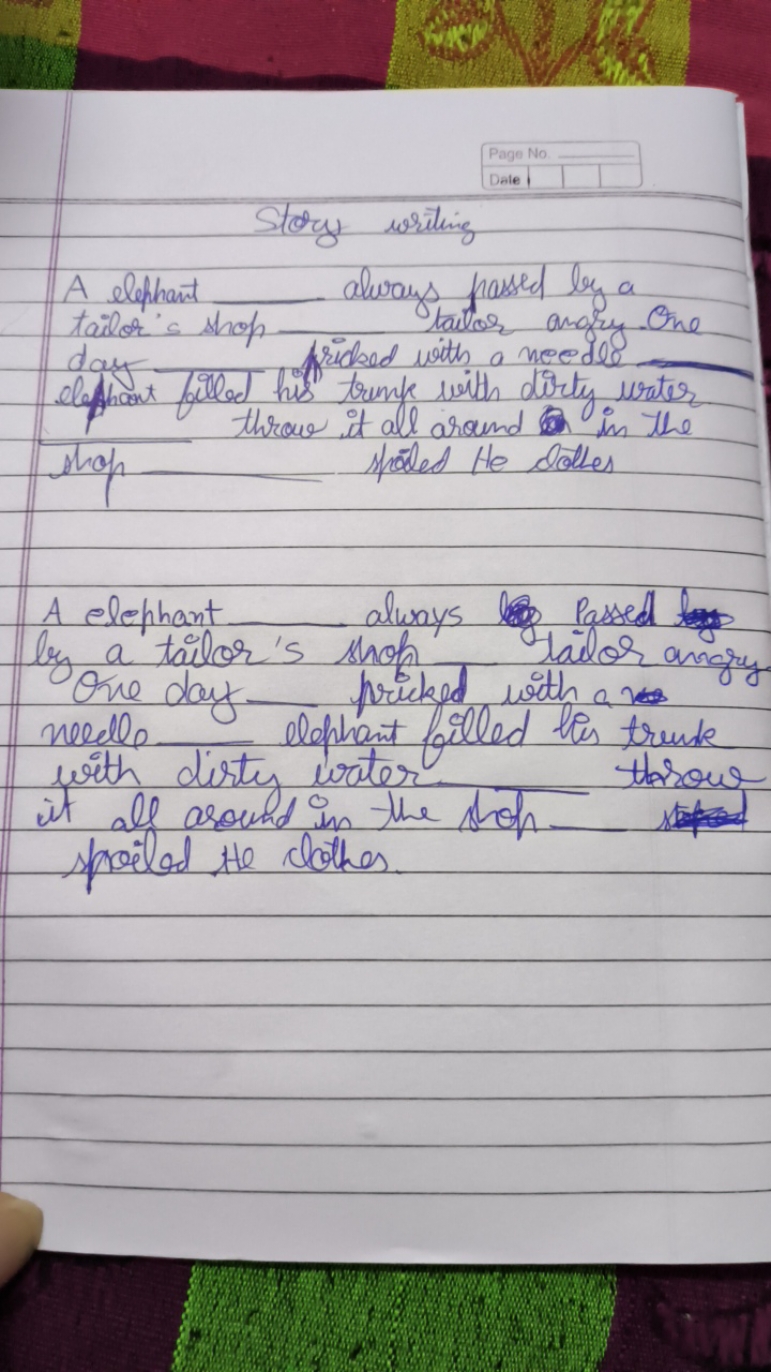 Page No. ________
Date
Story writing
A elephant ________ always passed by a
tailor's shop ________ tailor angry. One
day ________ pricked with a needle ________
elephant filled his trunk with dirty water
________ throw it all around in the
shop ________ spoiled He clothes
A elephant ________ always Passed
by a tailor's shop ____ tailor angry.
One day ____ pricked with a
needle ____ elephant filled his trunk
with dirty water ________ throw
it all around in the shop ____
spoiled He clothes.